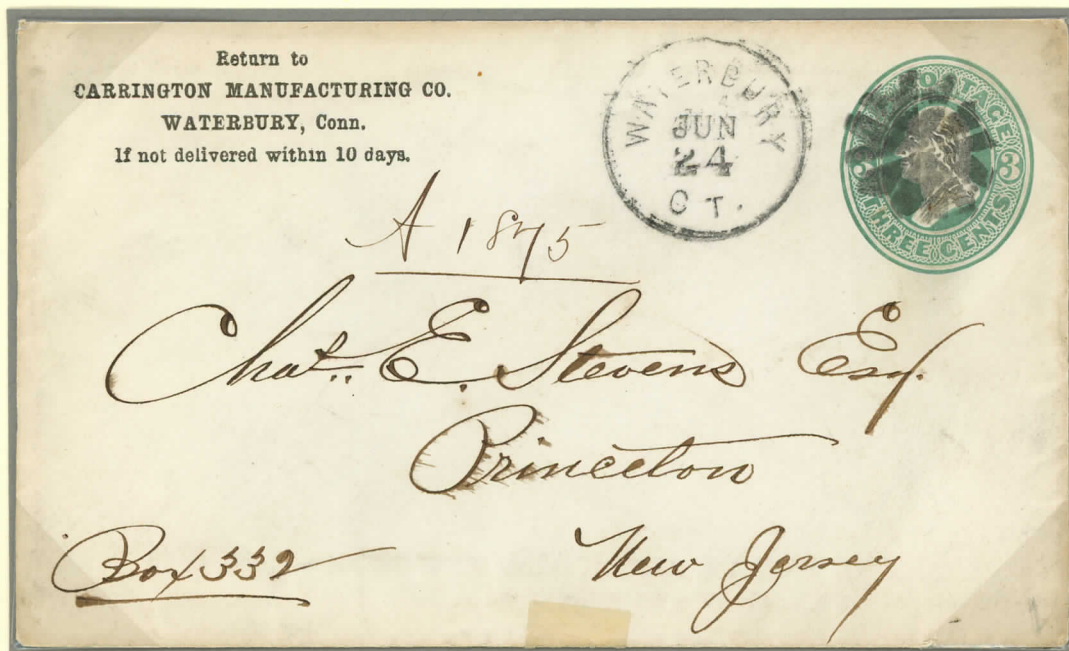 Return to
CARRINGTON MANUFACTURING CO.
WATERBURY, Conn.
If not delivered within 10 days.
WATERBURY
JUN
24
CT.
POSTAGE
3 3
THREE CENTS
A 1875
Chas. E. Stevens Esq.
Princeton
New Jersey
Box 332